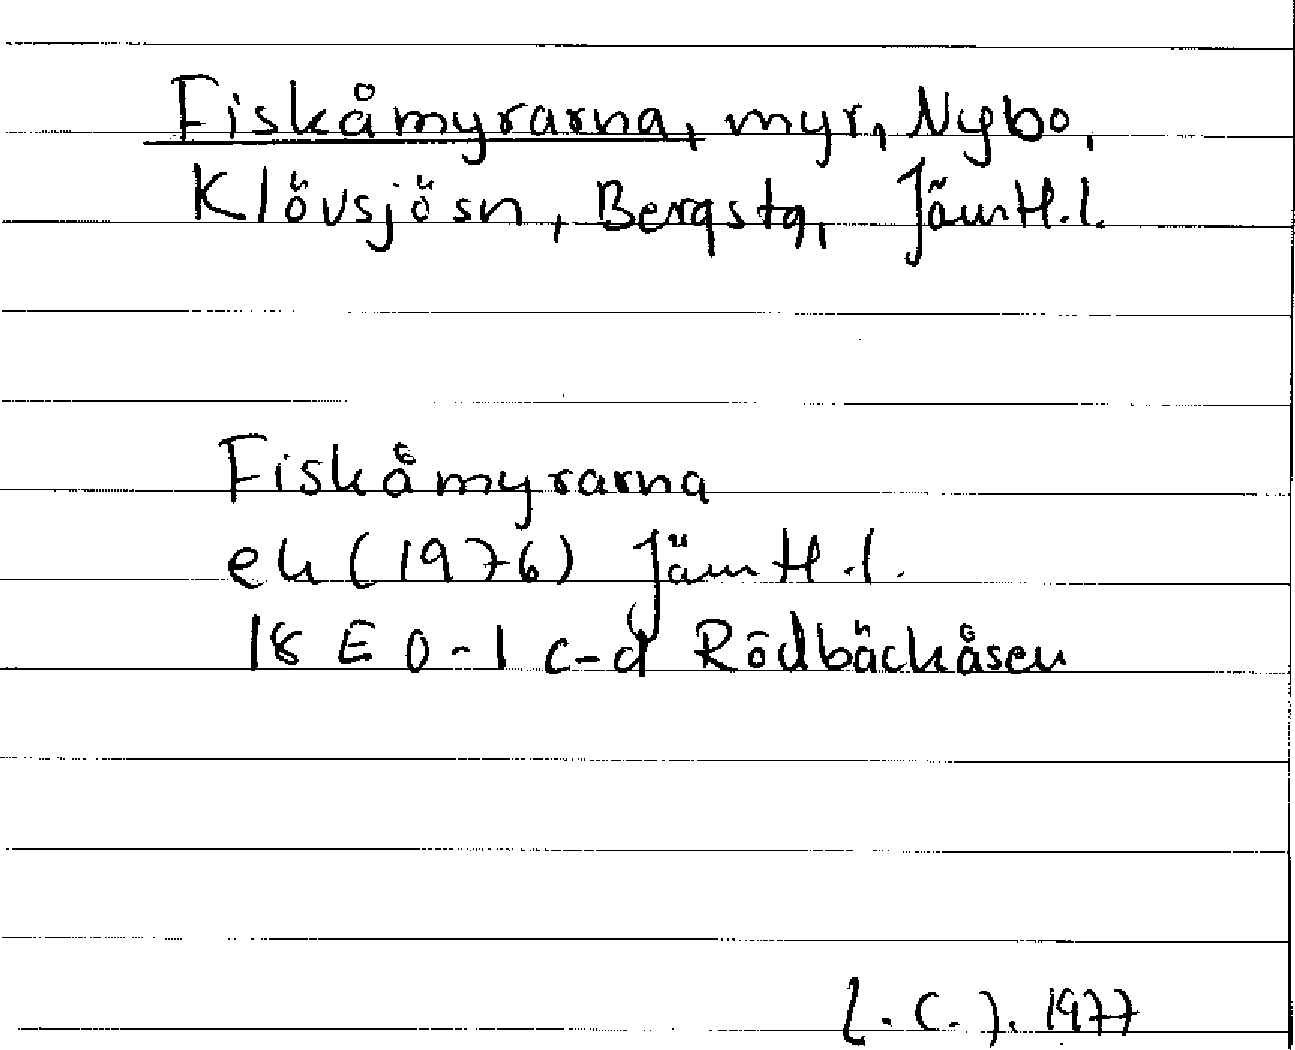 Fiskåmyrarna, myr, Nybo,
Klövsjösn, Bergstg, Jämtl.l.
Fiskåmyrarna
ek (1976) Jämtl.l.
18 E 0-1 c-d Rödbäckåsen
L.C.J. 1977